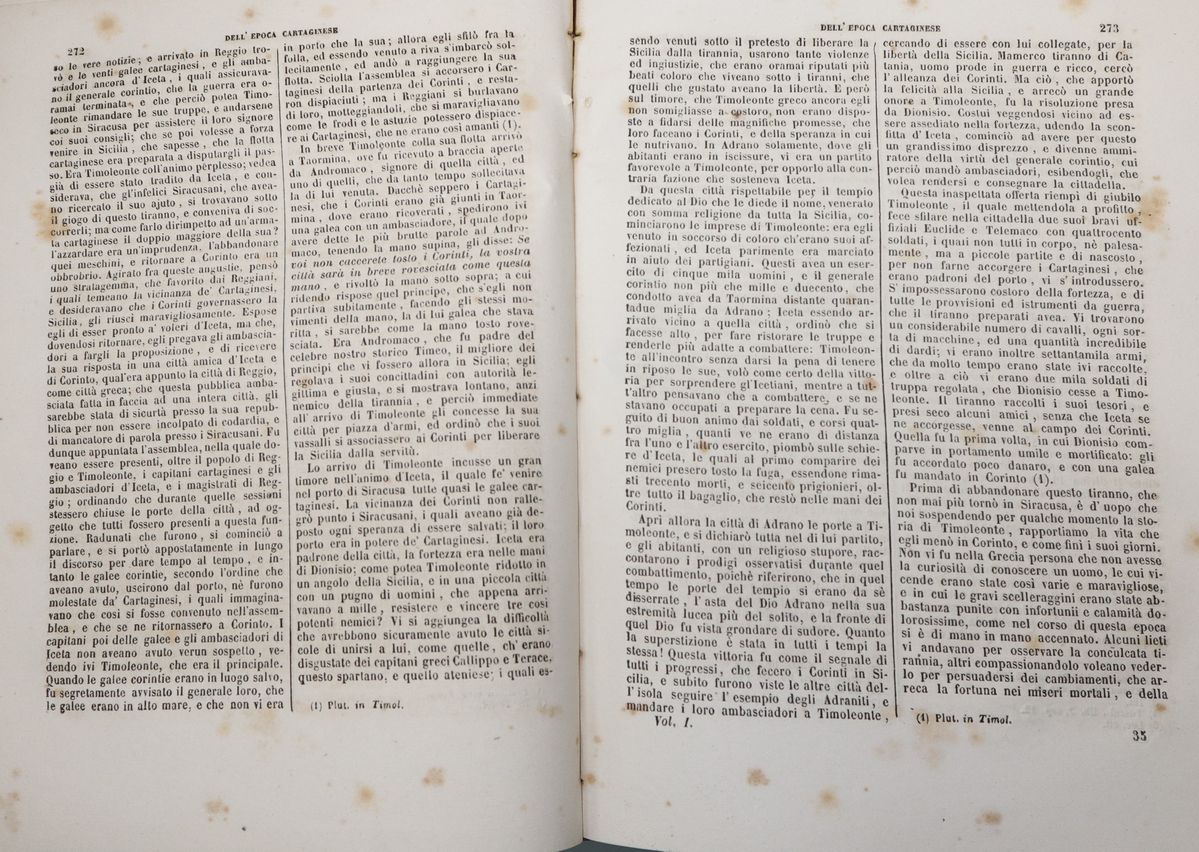 272
DELL' EPOCA CARTAGINESE
so le vere notizie; e arrivato in Reggio tro-
vò e le venti galee cartaginesi, e gli amba-
sciadori ancora d'Iceta, i quali assicurava-
no il generale corintio, che la guerra era o-
ramai terminata, e che perciò potea Timo-
leonte rimandare le sue truppe, e andarsene
seco in Siracusa per assistere il loro signore
coi suoi consigli; che se poi volesse a forza
venire in Sicilia, che sapesse, che la flotta
cartaginese era preparata a disputargli il pas-
so. Era Timoleonte coll'animo perplesso; vedea
già di essere stato tradito da Iceta, e con-
siderava, che gl'infelici Siracusani, che avea-
no ricercato il suo ajuto, si trovavano sotto
il giogo di questo tiranno, e conveniva di soc-
correrli; ma come farlo dirimpetto ad un'arma-
ta cartaginese il doppio maggiore della sua?
l'azzardare era un'imprudenza, l'abbandonare
quei meschini, e ritornare a Corinto era un
obbrobrio. Agirato fra queste angustie, pensò
uno stratagemma, che favorito dai Reggiani,
i quali temeano la vicinanza de' Cartaginesi,
e desideravano che i Corinti governassero la
Sicilia, gli riuscì maravigliosamente. Espose
egli di esser pronto a' voleri d'Iceta, ma che,
dovendosi ritornare, egli pregava gli ambascia-
dori a fargli la proposizione, e di ricevere
la sua risposta in una città amica d'Iceta e
di Corinto, qual'era appunto la città di Reggio,
come città greca; che questa pubblica amba-
sciata fatta in faccia ad una intera città, gli
sarebbe stata di sicurtà presso la sua repub-
blica per non essere incolpato di codardia, e
di mancatore di parola presso i Siracusani. Fu
dunque appuntata l'assemblea, nella quale do-
veano essere presenti, oltre il popolo di Reg-
gio e Timoleonte, i capitani cartaginesi e gli
ambasciadori d'Iceta, e i magistrati di Reg-
gio; ordinando che durante quelle sessioni
stessero chiuse le porte della città, ad og-
getto che tutti fossero presenti a questa fun-
zione. Radunati che furono, si cominciò a
parlare, e si portò appostatamente in lungo
il discorso per dare tempo al tempo, e in-
tanto le galee corintie, secondo l'ordine che
aveano avuto, uscirono dal porto, nè furono
molestate da' Cartaginesi, i quali immagina-
vano che così si fosse convenuto nell'assem-
blea, e che se ne ritornassero a Corinto. I
capitani poi delle galee e gli ambasciadori di
Iceta non aveano avuto verun sospetto, ve-
dendo ivi Timoleonte, che era il principale.
Quando le galee corintie erano in luogo salvo,
fu segretamente avvisato il generale loro, che
le galee erano in alto mare, e che non vi era
in porto che la sua; allora egli sfilò fra la
folla, ed essendo venuto a riva s'imbarcò sol-
lecitamente, ed andò a raggiungere la sua
flotta. Sciolta l'assemblea si accorsero i Car-
taginesi della partenza dei Corinti, e resta-
ron dispiaciuti; ma i Reggiani si burlavano
di loro, motteggiandoli, che si maravigliavano
come le frodi e le astuzie potessero dispiace-
re ai Cartaginesi, che ne erano così amanti (1).
In breve Timoleonte colla sua flotta arrivò
a Taormina, ove fu ricevuto a braccia aperte
da Andromaco, signore di quella città, ed
uno di quelli, che da tanto tempo sollecitava
la di lui venuta. Dacchè seppero i Cartagi-
nesi, che i Corinti erano già giunti in Taor-
mina, dove erano ricoverati, spedirono ivi
una galea con un ambasciadore, il quale dopo
avere dette le più brutte parole ad Andro-
maco, tenendo la mano supina, gli disse: Se
voi non caccerete tosto i Corinti, la vostra
città sarà in breve rovesciata come questa
mano, e rivoltò la mano sotto sopra; a cui
ridendo rispose quel principe, che s'egli non
partiva subitamente, facendo gli stessi mo-
vimenti della mano, la di lui galea che stava
ritta, si sarebbe come la mano tosto rove-
sciata. Era Andromaco, che fu padre del
celebre nostro storico Timeo, il migliore dei
principi che vi fossero allora in Sicilia; egli
regolava i suoi concittadini con autorità le-
gittima e giusta, e si mostrava lontano, anzi
nemico della tirannia, e perciò immediate
all'arrivo di Timoleonte gli concesse la sua
città per piazza d'armi, ed ordinò che i suoi
vassalli si associassero ai Corinti per liberare
la Sicilia dalla servitù.
Lo arrivo di Timoleonte incusse un gran
timore nell'animo d'Iceta, il quale fe' venire
nel porto di Siracusa tutte quasi le galee car-
taginesi. La vicinanza dei Corinti non ralle-
grò punto i Siracusani, i quali aveano già de-
posto ogni speranza di essere salvati; il loro
porto era in potere de' Cartaginesi. Iceta era
padrone della città, la fortezza era nelle mani
di Dionisio; come potea Timoleonte ridotto in
un angolo della Sicilia, e in una piccola città
con un pugno di uomini, che appena arri-
vavano a mille, resistere e vincere tre così
potenti nemici? Vi si aggiunga la difficoltà
che avrebbono sicuramente avuto le città si-
cole di unirsi a lui, come quelle, ch' erano
disgustate dei capitani greci Callippo e Terace,
questo spartano, e quello ateniese; i quali es-
(1) Plut. in Timol.
DELL' EPOCA CARTAGINESE
273
sendo venuti sotto il pretesto di liberare la
Sicilia dalla tirannia, usarono tante violenze
ed ingiustizie, che erano oramai riputati più
beati coloro che viveano sotto i tiranni, che
quelli che gustato aveano la libertà. E però
sul timore, che Timoleonte greco ancora egli
non somigliasse a costoro, non erano dispo-
ste a fidarsi delle magnifiche promesse, che
loro faceano i Corinti, e della speranza in cui
le nutrivano. In Adrano solamente, dove gli
abitanti erano in iscissure, vi era un partito
favorevole a Timoleonte, per opporlo alla con-
traria fazione che sosteneva Iceta.
Da questa città rispettabile per il tempio
dedicato al Dio che le diede il nome, venerato
con somma religione da tutta la Sicilia, co-
minciarono le imprese di Timoleonte: era egli
venuto in soccorso di coloro ch'erano suoi af-
fezionati, ed Iceta parimente era marciato
in aiuto dei partigiani. Questi avea un eser-
cito di cinque mila uomini, e il generale
corintio non più che mille e duecento, che
condotto avea da Taormina distante quaran-
tadue miglia da Adrano; Iceta essendo ar-
rivato vicino a quella città, ordinò che si
facesse alto, per fare ristorare le truppe e
renderle più adatte a combattere: Timoleon-
te all'incontro senza darsi la pena di tenere
in riposo le sue, volò come certo della vitto-
ria per sorprendere gl'Icetiani, mentre a tut-
t'altro pensavano che a combattere, e se ne
stavano occupati a preparare la cena. Fu se-
guito di buon animo dai soldati, e corsi quat-
tro miglia, quanti ve ne erano di distanza
fra l'uno e l'altro esercito, piombò sulle schie-
re d'Iceta, le quali al primo comparire dei
nemici presero tosto la fuga, essendone rima-
sti trecento morti, e seicento prigionieri, ol-
tre tutto il bagaglio, che restò nelle mani dei
Corinti.
Aprì allora la città di Adrano le porte a Ti-
moleonte, e si dichiarò tutta nel di lui partito,
e gli abitanti, con un religioso stupore, rac-
contarono i prodigi osservatisi durante quel
combattimento, poichè riferirono, che in quel
tempo le porte del tempio si erano da sè
disserrate, l'asta del Dio Adrano nella sua
estremità lucea più del solito, e la fronte di
quel Dio fu vista grondare di sudore. Quanto
la superstizione è stata in tutti i tempi la
stessa! Questa vittoria fu come il segnale di
tutti i progressi, che fecero i Corinti in Si-
cilia, e subito furono viste le altre città del-
l'isola seguire l'esempio degli Adraniti, e
mandare i loro ambasciadori a Timoleonte,
Vol. I.
cercando di essere con lui collegate, per la
libertà della Sicilia. Mamerco tiranno di Ca-
tania, uomo prode in guerra e ricco, cercò
l'alleanza dei Corinti. Ma ciò, che apportò
la felicità alla Sicilia, e arrecò un grande
onore a Timoleonte, fu la risoluzione presa
da Dionisio. Costui veggendosi vicino ad es-
sere assediato nella fortezza, udendo la scon-
fitta d'Iceta, cominciò ad avere per questo
un grandissimo disprezzo, e divenne ammi-
ratore della virtù del generale corintio, cui
perciò mandò ambasciadori, esibendogli, che
volea rendersi e consegnare la cittadella.
Questa inaspettata offerta riempì di giubilo
Timoleonte, il quale mettendola a profitto,
fece sfilare nella cittadella due suoi bravi uf-
fiziali Euclide e Telemaco con quattrocento
soldati, i quali non tutti in corpo, nè palesa-
mente, ma a piccole partite e di nascosto,
per non farne accorgere i Cartaginesi, che
erano padroni del porto, vi s'introdussero.
S'impossessarono costoro della fortezza, e di
tutte le provvisioni ed istrumenti da guerra,
che il tiranno preparati avea. Vi trovarono
un considerabile numero di cavalli, ogni sor-
ta di macchine, ed una quantità incredibile
di dardi; vi erano inoltre settantamila armi,
che da molto tempo erano state ivi raccolte,
e oltre a ciò vi erano due mila soldati di
truppa regolata, che Dionisio cesse a Timo-
leonte. Il tiranno raccolti i suoi tesori, e
presi seco alcuni amici, senza che Iceta se
ne accorgesse, venne al campo dei Corinti.
Quella fu la prima volta, in cui Dionisio com-
parve in portamento umile e mortificato: gli
fu accordato poco danaro, e con una galea
fu mandato in Corinto (1).
Prima di abbandonare questo tiranno, che
non mai più tornò in Siracusa, è d'uopo che
noi sospendendo per qualche momento la sto-
ria di Timoleonte, rapportiamo la vita che
egli menò in Corinto, e come finì i suoi giorni.
Non vi fu nella Grecia persona che non avesse
la curiosità di conoscere un uomo, le cui vi-
cende erano state così varie e maravigliose,
e in cui le gravi scelleraggini erano state ab-
bastanza punite con infortunii e calamità do-
lorosissime, come nel corso di questa epoca
si è di mano in mano accennato. Alcuni lieti
vi andavano per osservare la conculcata ti-
rannia, altri compassionandolo voleano veder-
lo per persuadersi dei cambiamenti, che ar-
reca la fortuna nei miseri mortali, e della
(1) Plut. in Timol.
35